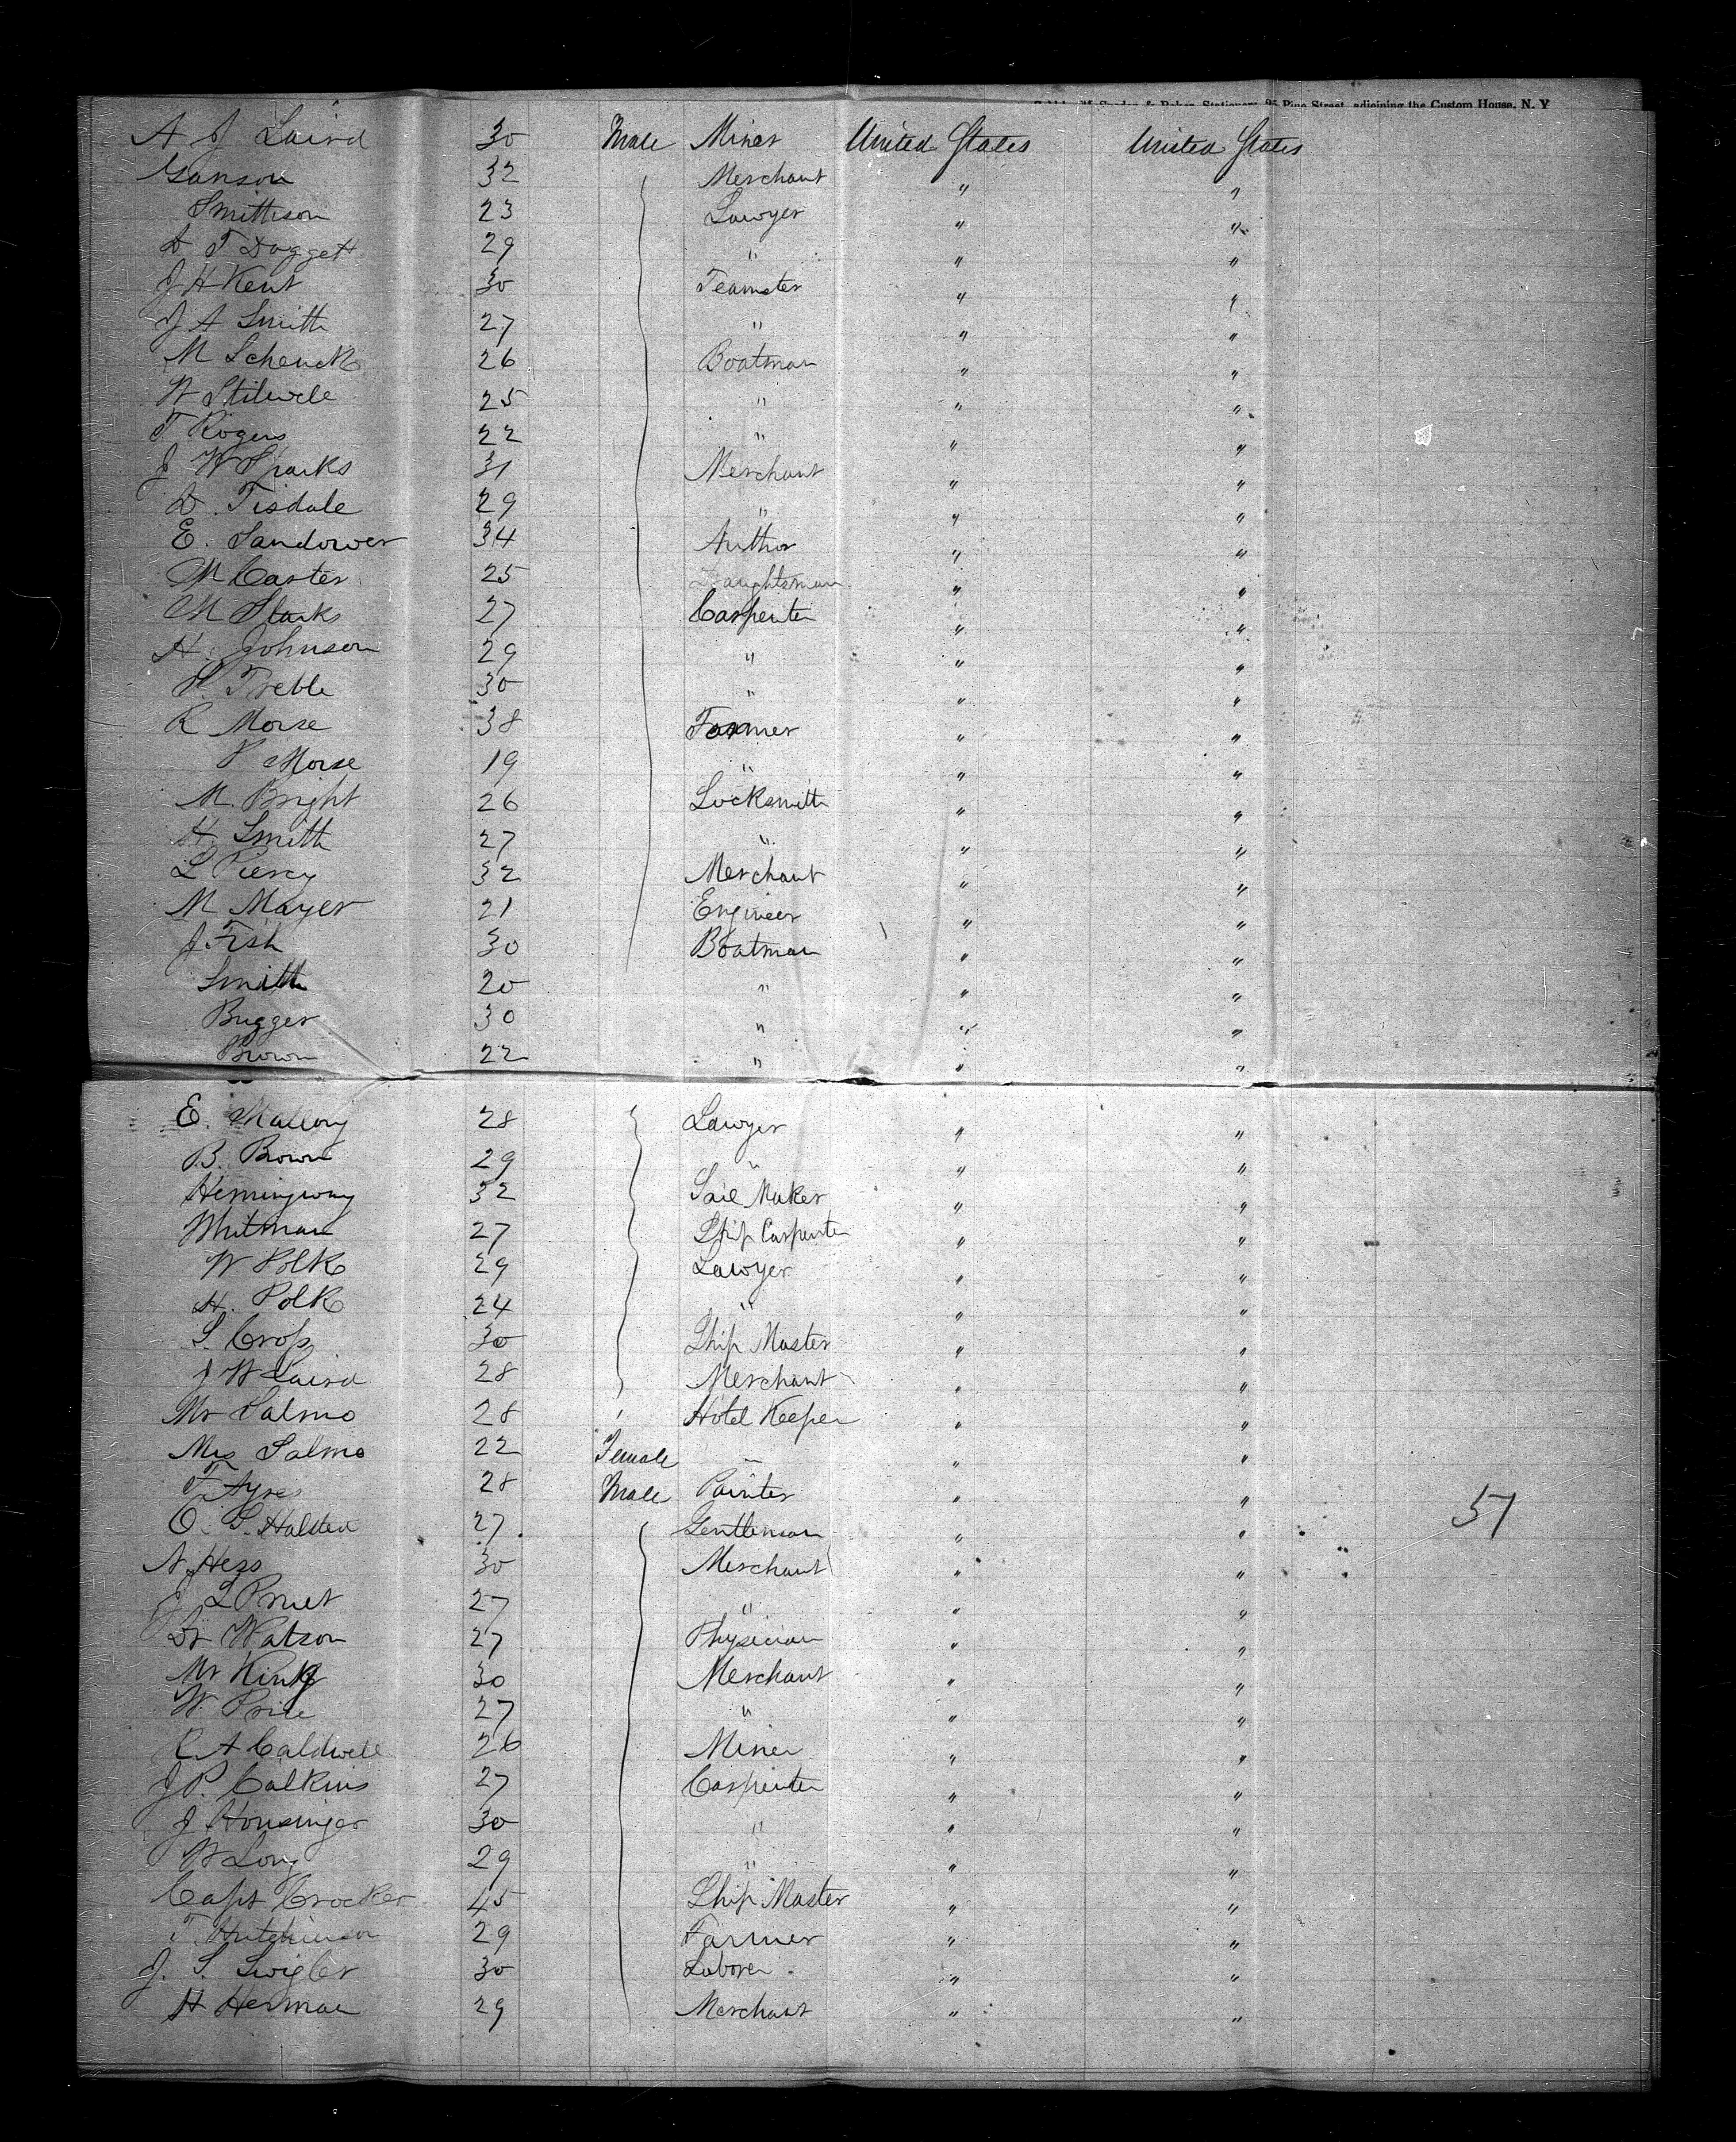 Stationers, 95 Pine Street, adjoining the Custom House, N. Y
A J Laird 30 Male Miner United States United States
Ganson 32 Merchant " "
Smithson 23 Lawyer " "
D T Doggett 29 " " "
J H Kent 30 Teamster " "
J A Smith 27 " " "
M Schenck 26 Boatman " "
W Stilwele 25 " " "
T Rogers 22 " " "
J W Sparks 31 Merchant " "
D. Tisdale 29 " " "
E. Sandower 34 Author " "
M Carter 25 Draughtsman " "
M Starks 27 Carpenter " "
H. Johnson 29 " " "
P. Treble 30 " " "
R Morse 38 Farmer " "
P Morse 19 " " "
M. Bright 26 Locksmith " "
H Smith 27 " " "
L Piercy 32 Merchant " "
M Mayer 21 Engineer " "
J Fish 30 Boatman " "
Smith 20 " " "
Bugger 30 " " "
Brown 22 " " "
E. Mallory 28 Lawyer " "
B. Brown 29 " " "
Hemingway 32 Sail Maker " "
Whitman 27 Ship Carpenter " "
W Polk 29 Lawyer " "
H. Polk 24 " " "
S. Crop 30 Ship Master " "
J W Laird 28 Merchant " "
Mr Salmo 28 ' Hotel Keeper " "
Mrs Salmo 22 Female — " "
F Ayres 28 Male Painter " "
O. S. Halsted 27 Gentleman " "
N Hess 30 Merchant " "
J L Pruet 27 " " "
Dr Watson 27 Physician " "
Mr King 30 Merchant " "
W. Price 27 " " "
C A Caldwell 26 Miner " "
J P. Calkins 27 Carpenter " "
J Housinger 30 " " "
W Long 29 " " "
Capt Crocker 45 Ship Master " "
T. Hutchinson 29 Farmer " "
J. S. Swigler 30 Laborer " "
H Herman 29 Merchant " "
51